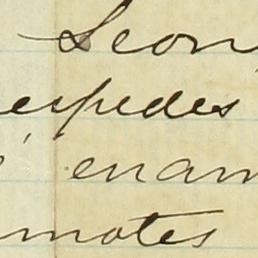 Leon
espedes
enam
motes